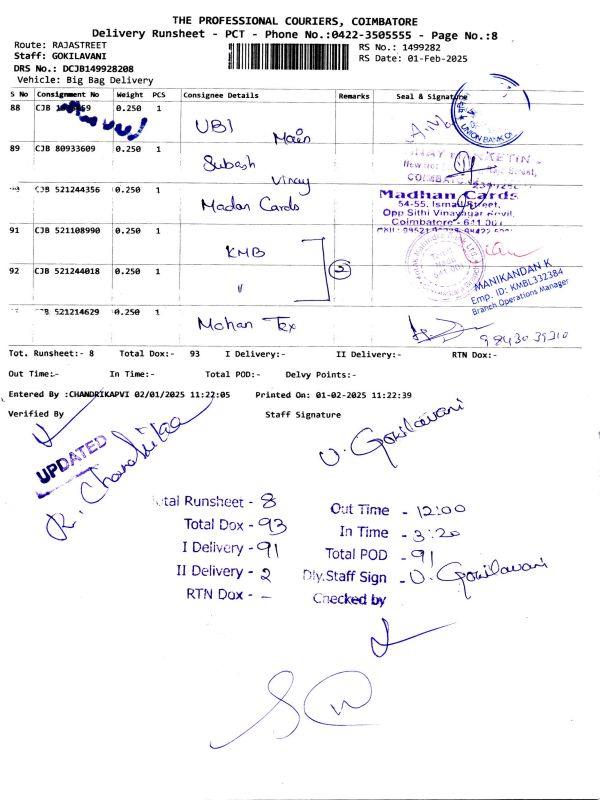 THE PROFESSIONAL COURIERS, COIMBATORE
Delivery Runsheet - PCT - Phone No.:0422-3505555 - Page No.:8
Route: RAJASTREET
Staff: GOKILAVANI
DRS No.: DCJB149928208
Vehicle: Big Bag Delivery
RS No.: 1499282
RS Date: 01-Feb-2025
S No Consignment No Weight PCS Consignee Details Remarks Seal & Signature
88 CJB 0.250 1 UBI Main
UNION BANK O
89 CJB 80933609 0.250 1 Subash Vinay
COIMBATO
CJB 521244356 0.250 1 Madan Cards
Madhan Cards
54-55, Ismail Street,
Opp Sithi Vinayagar Kovil,
Coimbatore - 641 001
91 CJB 521108990 0.250 1 KMB
92 CJB 521244018 0.250 1 〃 2
MANIKANDAN K
Emp. ID: KMBL332384
Branch Operations Manager
521214629 0.250 1 Mohan Tex
98430 39310
Tot. Runsheet:- 8 Total Dox:- 93 I Delivery:- II Delivery:- RTN Dox:-
Out Time:- In Time:- Total POD:- Delvy Points:-
Entered By :CHANDRIKAPVI 02/01/2025 11:22:05 Printed On: 01-02-2025 11:22:39
Verified By Staff Signature
UPDATED
V. Gokilavani
Total Runsheet - 8
Total Dox - 93
I Delivery - 91
II Delivery - 2
RTN Dox - -
Out Time - 12:00
In Time - 3:20
Total POD - 91
Dly.Staff Sign - V. Gokilavani
Checked by